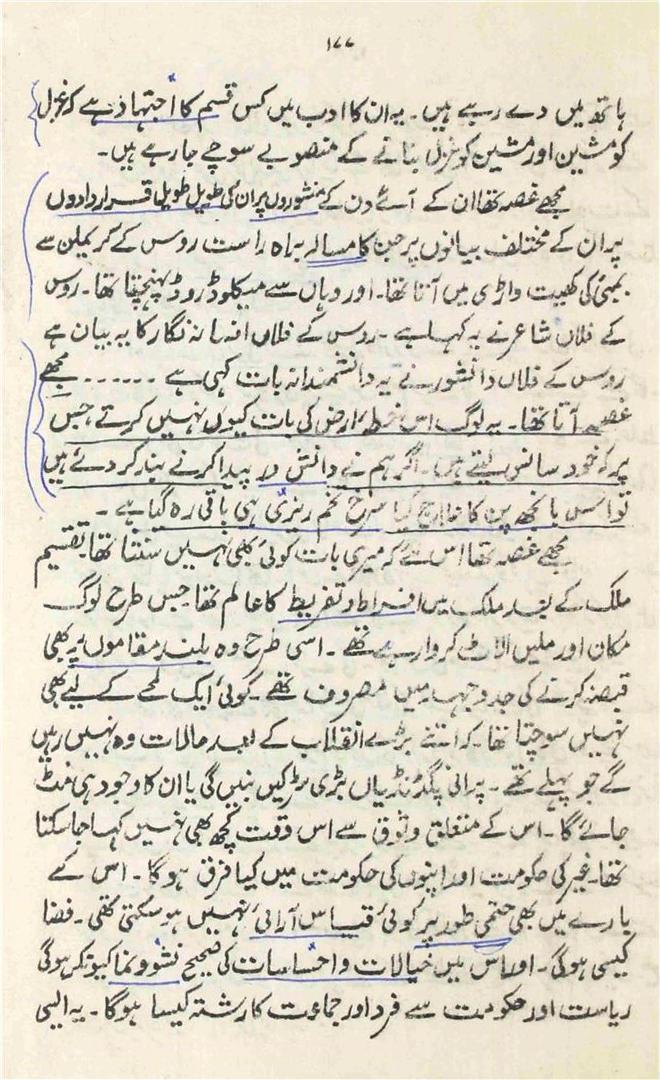 ۱۷۷
ہاتھ میں دے رہے ہیں۔ یہ ان کا ادب میں کس قسم کا اجتہاد ہے کہ غزل
کو مشین اور مشین کو غزل بنانے کے منصوبے سوچے جا رہے ہیں۔
مجھے غصہ تھا ان کے آئے دن کے منشوروں پر ان کی طویل طویل قراردادوں
پر ان کے مختلف بیانوں پر جن کا مسالہ براہ راست روس کے کریملن سے
بمبئی کی کھیت واڑی میں آتا تھا۔ اور وہاں سے میکلوڈ روڈ پہنچتا تھا۔ روس
کے فلاں شاعر نے یہ کہا ہے۔ روس کے فلاں افسانہ نگار کا یہ بیان ہے
روس کے فلاں دانشور نے یہ دانشمندانہ بات کہی ہے ۔۔۔۔۔۔ مجھے
غصہ آتا تھا۔ یہ لوگ اس خطہ ارض کی بات کیوں نہیں کرتے جس
پر کہ خود سانس لیتے ہیں۔ اگر ہم نے دانش ور پیدا کرنے بند کر دئے ہیں
تو اس بانجھ پن کا علاج کیا سرخ تخم ریزی ہی باقی رہ گیا ہے۔
مجھے غصہ تھا اس لئے کہ میری بات کوئی بھی نہیں سنتا تھا۔ تقسیم
ملک کے بعد ملک میں افراط و تفریط کا عالم تھا۔ جس طرح لوگ
مکان اور ملیں الاٹ کروا رہے تھے۔ اسی طرح وہ بلند مقاموں پر بھی
قبضہ کرنے کی جدوجہد میں مصروف تھے۔ کوئی ایک لمحے کے لیے بھی
نہیں سوچتا تھا۔ کہ اتنے بڑے انقلاب کے بعد حالات وہ نہیں رہیں
گے جو پہلے تھے۔ پرانی پگڈنڈیاں بڑی سڑکیں بنیں گی یا ان کا وجود ہی مٹ
جائے گا۔ اس کے متعلق وثوق سے اس وقت کچھ بھی نہیں کہا جا سکتا
تھا۔ غیر کی حکومت اور اپنوں کی حکومت میں کیا فرق ہو گا۔ اس کے
بارے میں بھی حتمی طور پر کوئی قیاس آرائی نہیں ہو سکتی تھی۔ فضا
کیسی ہو گی۔ اور اس میں خیالات و احساسات کی صحیح نشوونما کیونکر ہو گی
ریاست اور حکومت سے فرد اور جماعت کا رشتہ کیسا ہو گا۔ یہ ایسی